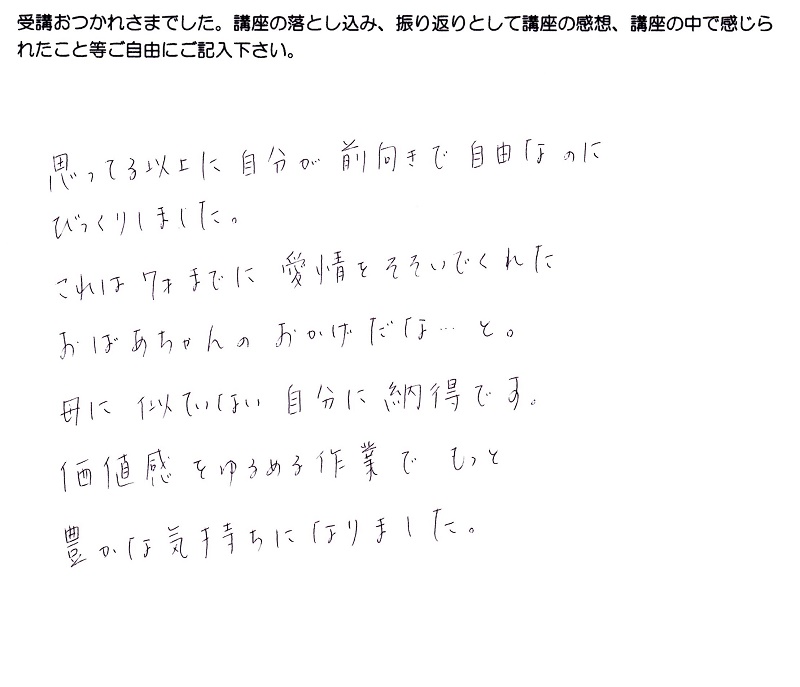 受講おつかれさまでした。講座の落とし込み、振り返りとして講座の感想、講座の中で感じら
れたこと等ご自由にご記入下さい。
思ってる以上に自分が前向きで自由なのに
びっくりしました。
これは7才までに愛情をそそいでくれた
おばあちゃんのおかげだな…と。
母に似ていない自分に納得です。
価値感をゆるめる作業でもっと
豊かな気持ちになりました。